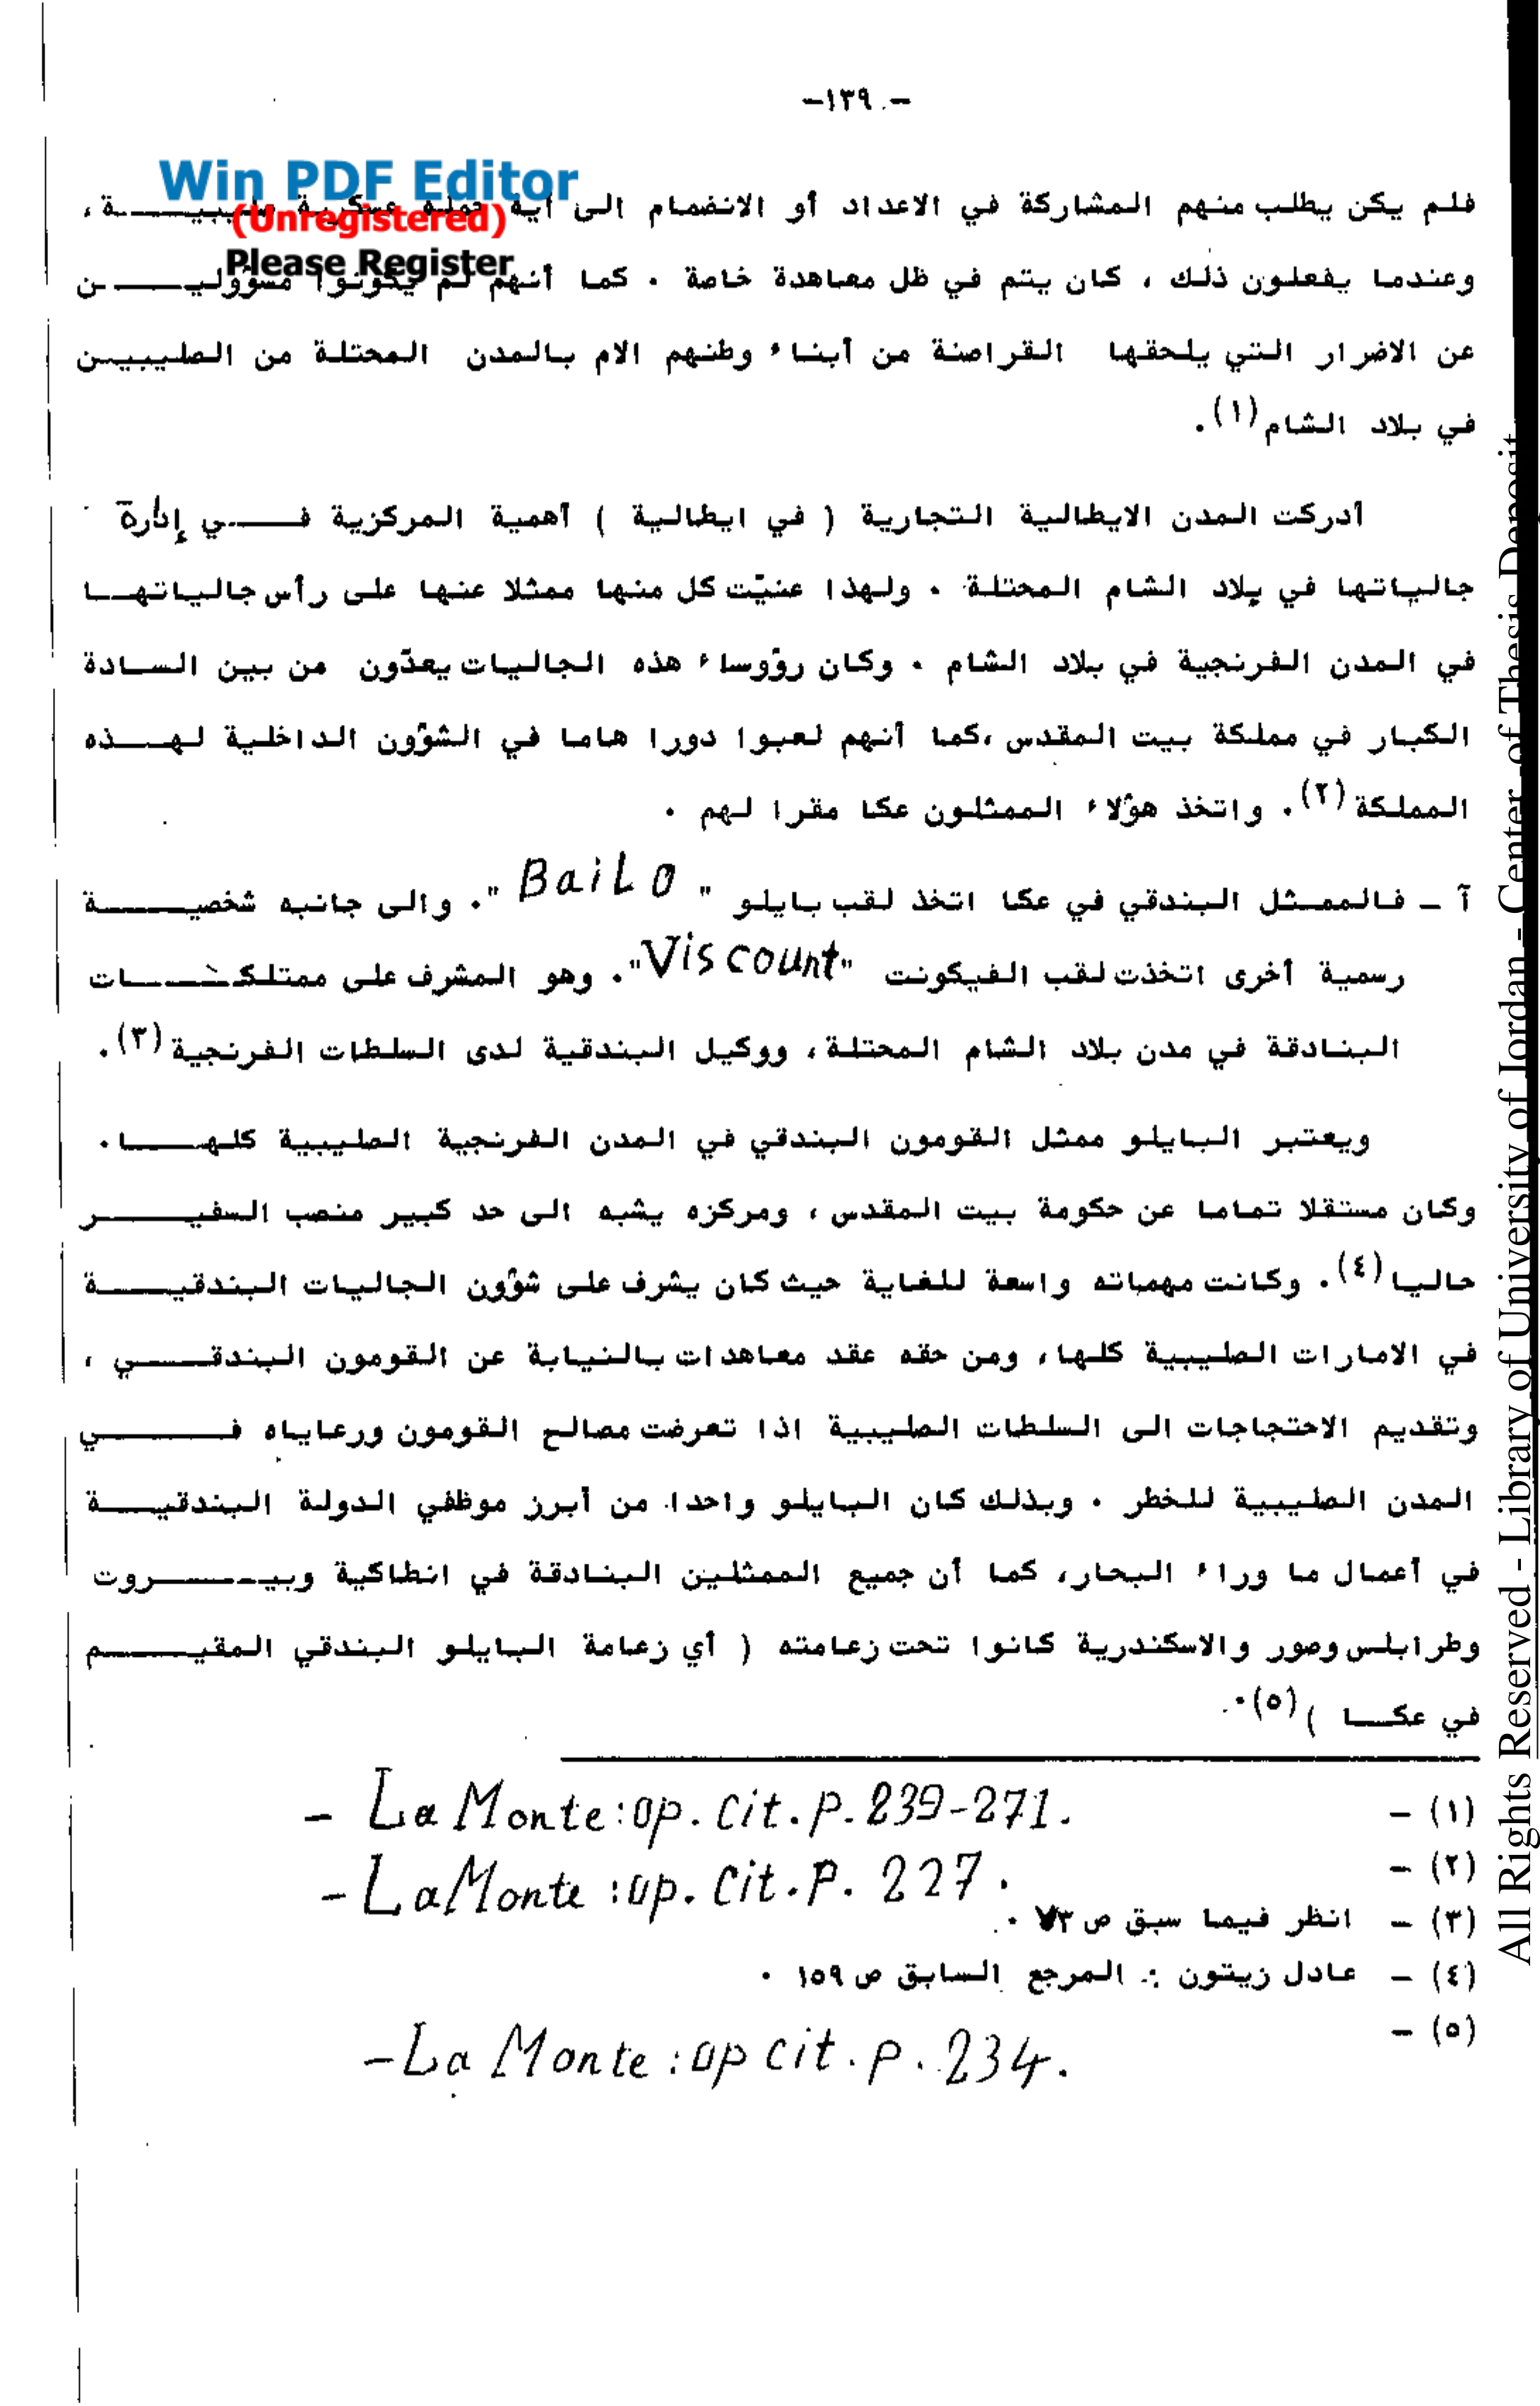 -١٣٩-
Win PDF Editor
(Unregistered)
Please Register
فلم يكن يطلب منهم المشاركة في الاعداد أو الانضمام الى أية حملة عسكرية صليبية ،
وعندما يفعلون ذلك ، كان يتم في ظل معاهدة خاصة . كما أنهم لم يكونوا مسؤولين
عن الاضرار التي يلحقها القراصنة من أبناء وطنهم الام بالمدن المحتلة من الصليبيين
في بلاد الشام (١) .
أدركت المدن الايطالية التجارية ( في ايطالية ) أهمية المركزية في إدارة
جالياتها في بلاد الشام المحتلة . ولهذا عنيّت كل منها ممثلا عنها على رأس جالياتها
في المدن الفرنجية في بلاد الشام . وكان رؤوساء هذه الجاليات يعدّون من بين السادة
الكبار في مملكة بيت المقدس ،كما أنهم لعبوا دورا هاما في الشؤون الداخلية لهذه
المملكة (٢) . واتخذ هؤلاء الممثلون عكا مقرا لهم .
آ - فالممثل البندقي في عكا اتخذ لقب بايلو " BaiLo ". والى جانبه شخصية
رسمية أخرى اتخذت لقب الفيكونت "Viscount". وهو المشرف على ممتلكات
البنادقة في مدن بلاد الشام المحتلة، ووكيل البندقية لدى السلطات الفرنجية (٣) .
ويعتبر البايلو ممثل القومون البندقي في المدن الفرنجية الصليبية كلها .
وكان مستقلا تماما عن حكومة بيت المقدس ، ومركزه يشبه الى حد كبير منصب السفير
حاليا (٤) . وكانت مهماته واسعة للغاية حيث كان يشرف على شؤون الجاليات البندقية
في الامارات الصليبية كلها، ومن حقه عقد معاهدات بالنيابة عن القومون البندقي ،
وتقديم الاحتجاجات الى السلطات الصليبية اذا تعرضت مصالح القومون ورعاياه في
المدن الصليبية للخطر . وبذلك كان البايلو واحدا من أبرز موظفي الدولة البندقية
في أعمال ما وراء البحار، كما أن جميع الممثلين البنادقة في انطاكية وبيروت
وطرابلس وصور والاسكندرية كانوا تحت زعامته ( أي زعامة البايلو البندقي المقيم
في عكا ) (٥) .
(١) - - La Monte: op. cit. p. 239-271.
(٢) - - La Monte: op. cit. p. 227.
(٣) - انظر فيما سبق ص ٧٣ .
(٤) - عادل زيتون : المرجع السابق ص ١٥٩ .
(٥) - - La Monte: op cit. p. 234.
All Rights Reserved - Library of University of Jordan - Center of Thesis Deposit